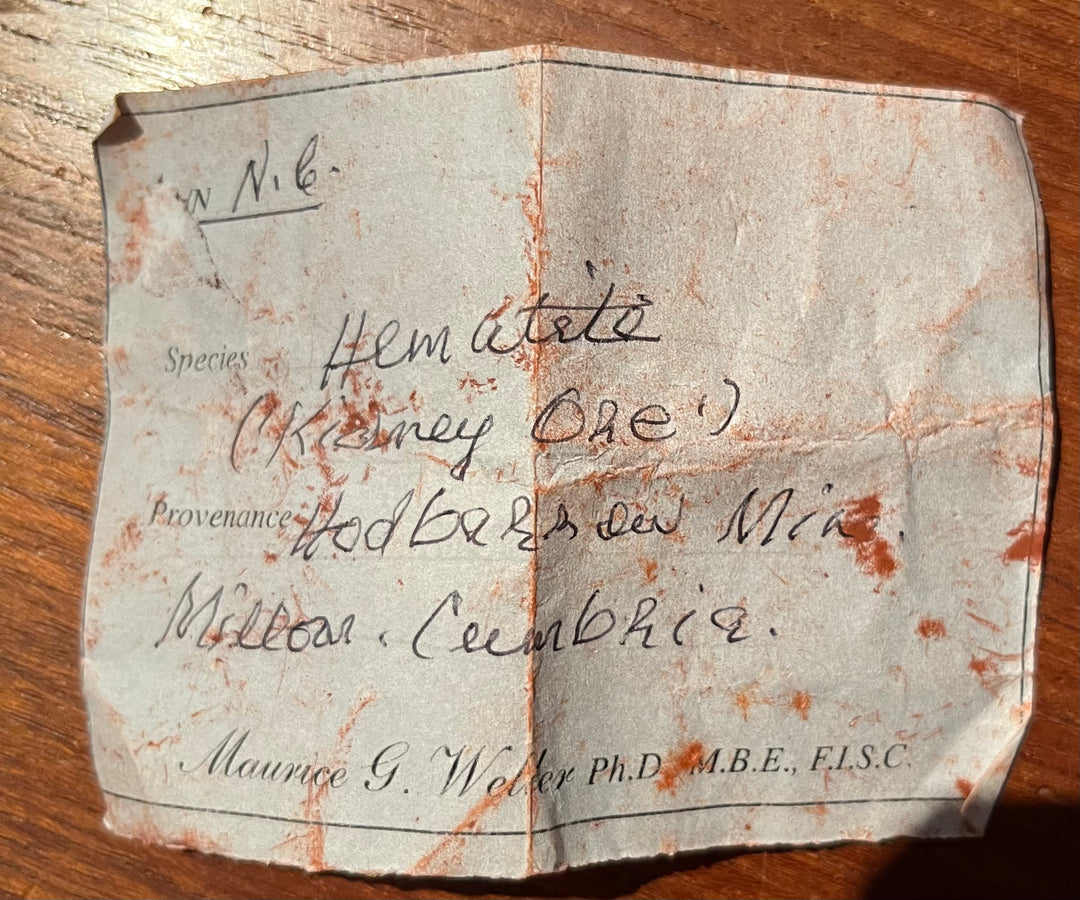 N.C.
Species Hematite
('Kidney Ore')
Provenance Hodbarrow Min.
Millom. Cumbria.
Maurice G. Weller Ph.D. M.B.E., F.I.S.C.